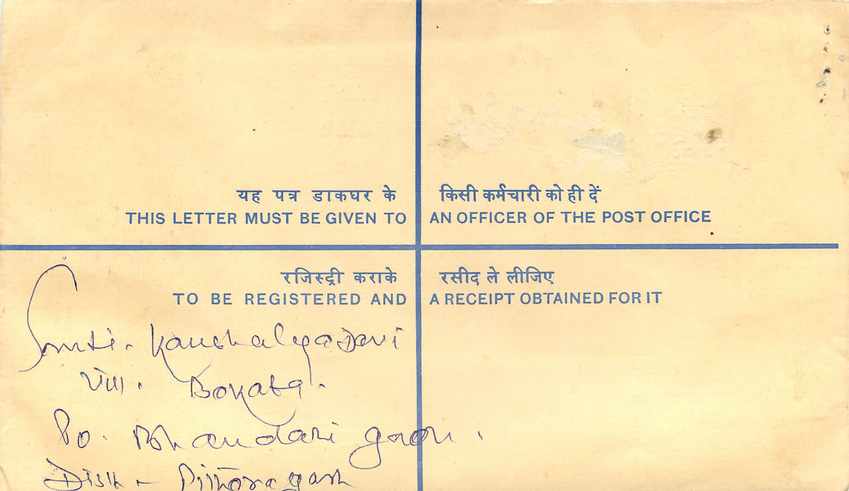 यह पत्र डाकघर के किसी कर्मचारी को ही दें
THIS LETTER MUST BE GIVEN TO AN OFFICER OF THE POST OFFICE
रजिस्ट्री कराके रसीद ले लीजिए
TO BE REGISTERED AND A RECEIPT OBTAINED FOR IT
Smti. Kaushalya Devi
Vill.
Po. Bhandari gaon.
Distt - Pithoragarh